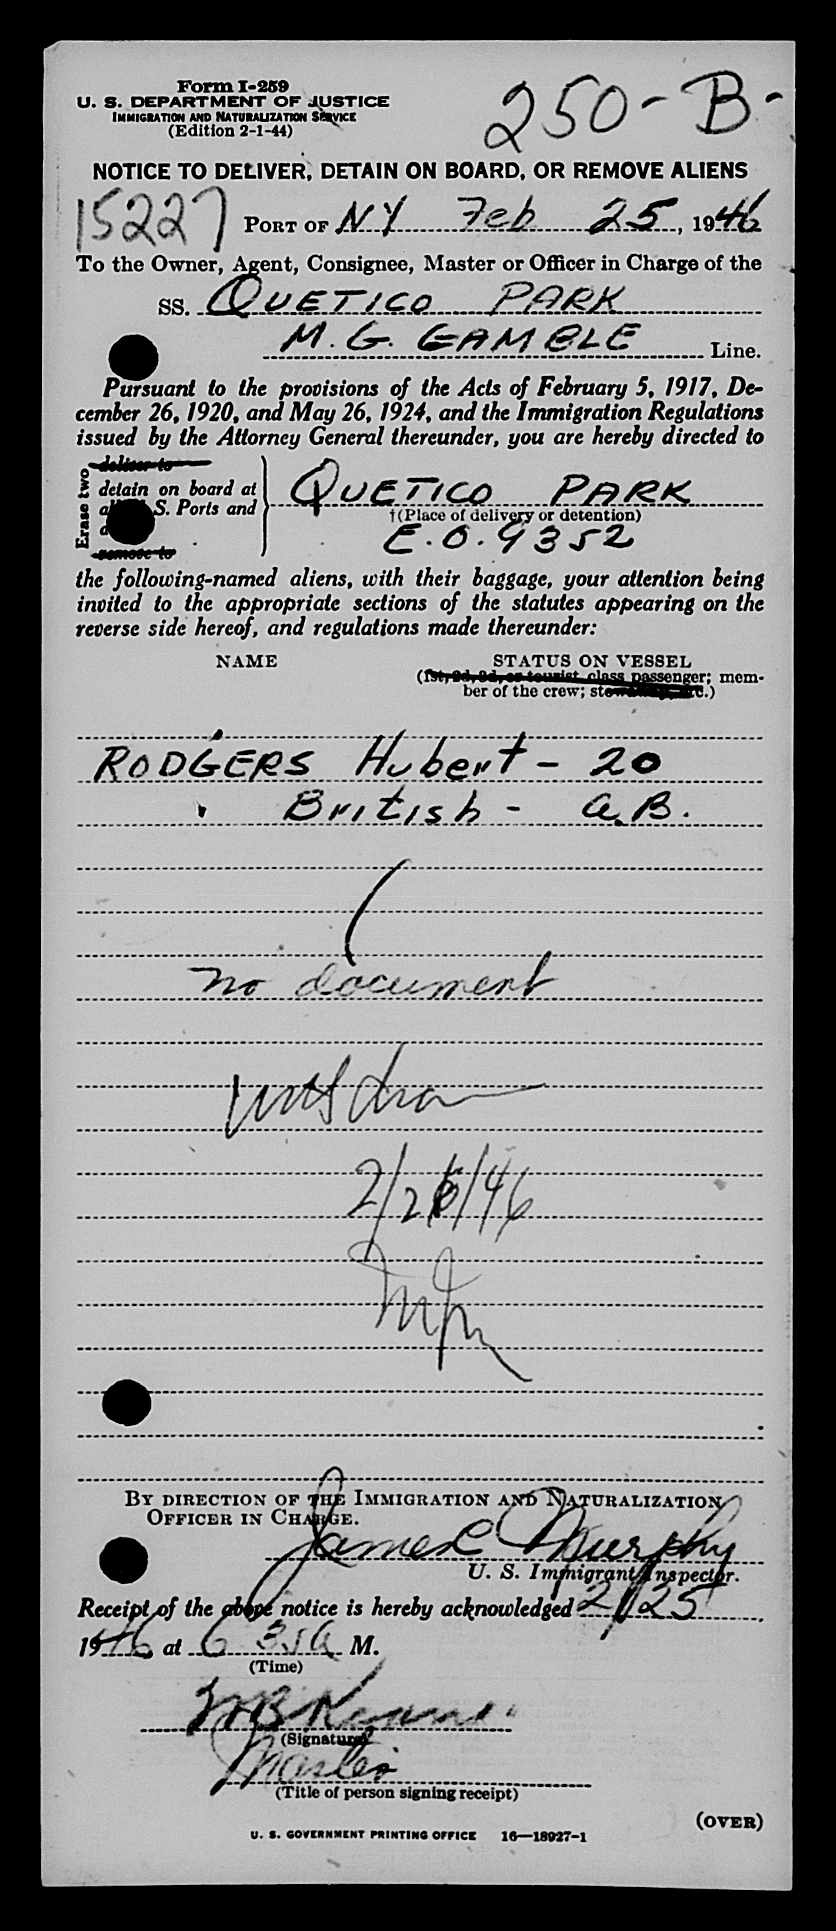 Form I-259
U. S. DEPARTMENT OF JUSTICE
IMMIGRATION AND NATURALIZATION SERVICE
(Edition 2-1-44)
250-B-
NOTICE TO DELIVER, DETAIN ON BOARD, OR REMOVE ALIENS
15227
PORT OF NY Feb 25, 1946
To the Owner, Agent, Consignee, Master or Officer in Charge of the
SS. QUETICO PARK
M. G. GAMBLE Line.
Pursuant to the provisions of the Acts of February 5, 1917, De-
cember 26, 1920, and May 26, 1924, and the Immigration Regulations
issued by the Attorney General thereunder, you are hereby directed to
Erase two
deliver to
detain on board at
S. Ports and
remove to
QUETICO PARK
†(Place of delivery or detention)
E.O. 9352
the following-named aliens, with their baggage, your attention being
invited to the appropriate sections of the statutes appearing on the
reverse side hereof, and regulations made thereunder:
NAME
STATUS ON VESSEL
(1st, 2d, 3d, or tourist class passenger; mem-
ber of the crew;
RODGERS Hubert - 20
British - A.B.
no document
2/26/46
BY DIRECTION OF THE IMMIGRATION AND NATURALIZATION
OFFICER IN CHARGE.
James Murphy
U. S. Immigrant Inspector.
Receipt of the above notice is hereby acknowledged 2/25
1946 at 6 35A M.
(Time)
(Signature)
Master
(Title of person signing receipt)
(OVER)
U. S. GOVERNMENT PRINTING OFFICE 16—18927-1